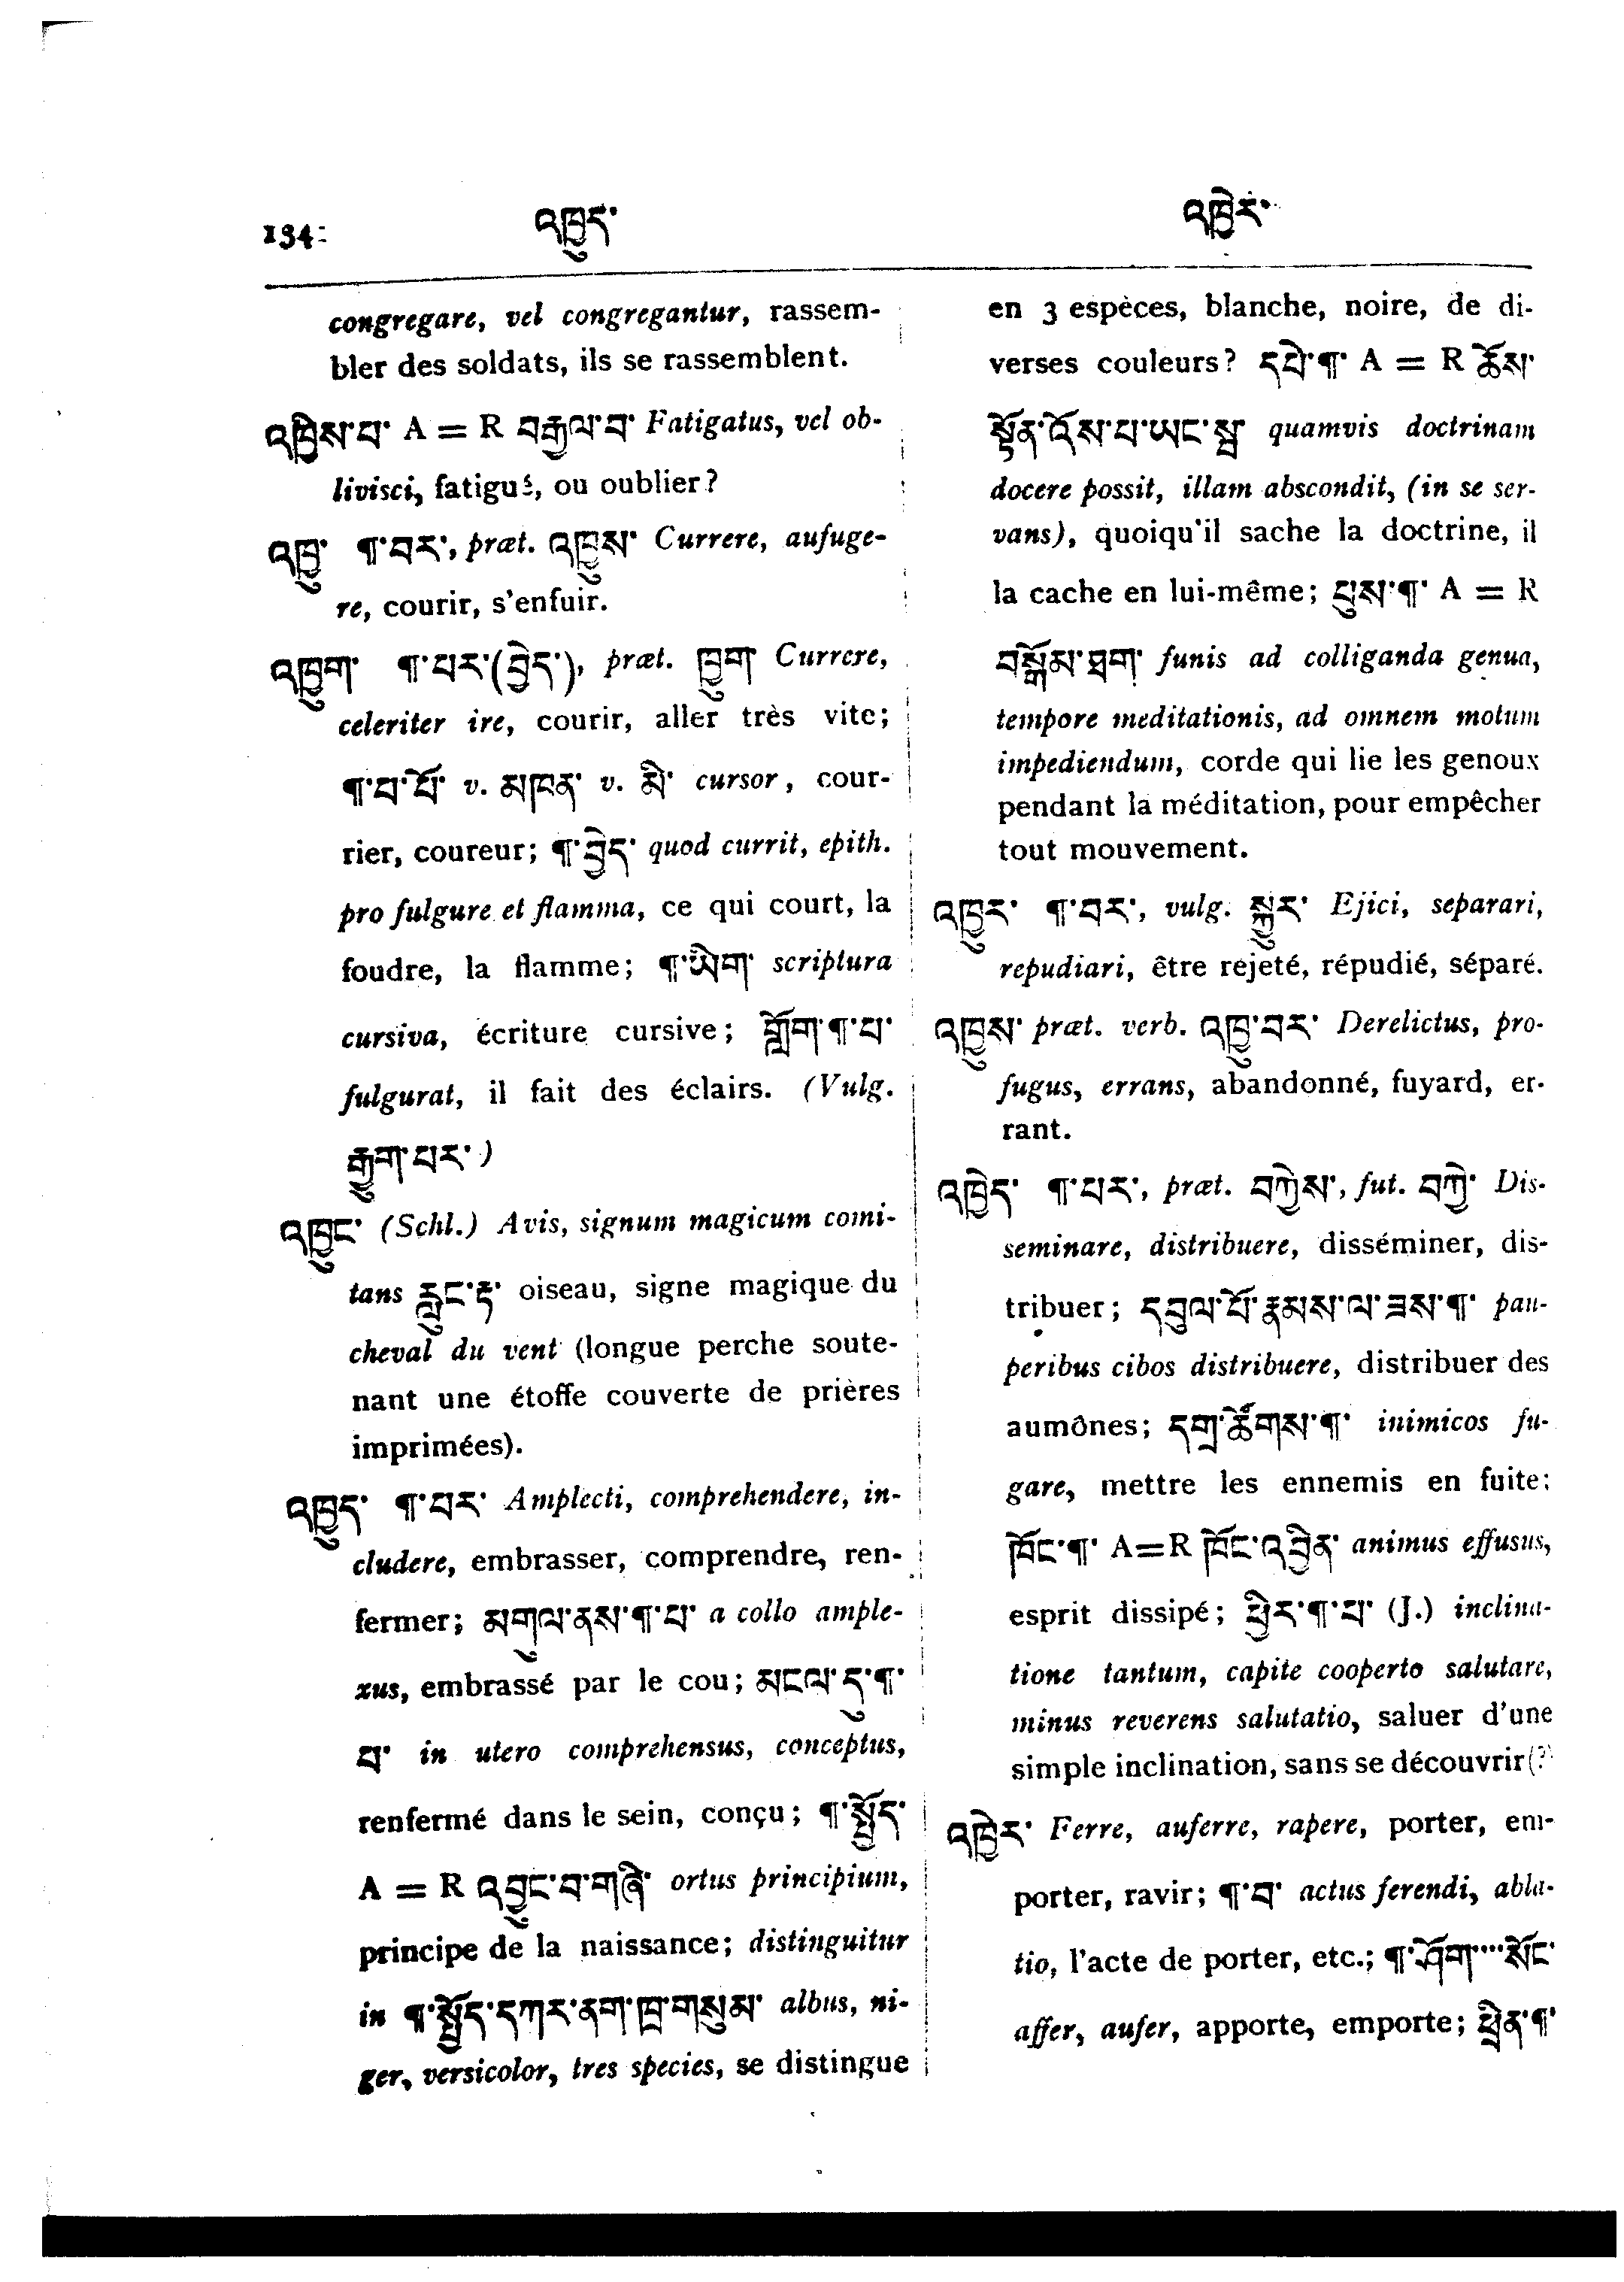 134
འཁྱུད་
འཁྱེར་
congregare, vel congregantur, rassem-
bler des soldats, ils se rassemblent.
འཁྱིས་པ་ A = R བརྒྱལ་བ་ Fatigatus, vel ob-
livisci, fatigué, ou oublier?
འཁྱུ་ ¶་བར་, præt. འཁྱུས་ Currere, aufuge-
re, courir, s'enfuir.
འཁྱུག་ ¶་པར་(བྱེད་), præt. ཁྱུག་ Currere,
celeriter ire, courir, aller très vite;
¶་པ་པོ་ v. མཁན་ v. མི་ cursor, cour-
rier, coureur; ¶་བྱེད་ quod currit, epith.
pro fulgure et flamma, ce qui court, la
foudre, la flamme; ¶་ཡིག་ scriptura
cursiva, écriture cursive; གློག་¶་པ་
fulgurat, il fait des éclairs. (Vulg.
རྒྱུག་པར་)
འཁྱུང་ (Schl.) Avis, signum magicum comi-
tans རླུང་རྟ་ oiseau, signe magique du
cheval du vent (longue perche soute-
nant une étoffe couverte de prières
imprimées).
འཁྱུད་ ¶་པར་ Amplecti, comprehendere, in-
cludere, embrasser, comprendre, ren-
fermer; མགུལ་ནས་¶་པ་ a collo ample-
xus, embrassé par le cou; མངལ་དུ་¶་
པ་ in utero comprehensus, conceptus,
renfermé dans le sein, conçu; ¶་སྤྱོད་
A = R འབྱུང་བ་གཞི་ ortus principium,
principe de la naissance; distinguitur
in ¶་སྤྱོད་དཀར་ནག་ཁྲ་གསུམ་ albus, ni-
ger, versicolor, tres species, se distingue
en 3 espèces, blanche, noire, de di-
verses couleurs? དཔེ་¶་ A = R ཆོས་
སྟོན་འོས་པ་ཡང་སྦ་ quamvis doctrinam
docere possit, illam abscondit, (in se ser-
vans), quoiqu'il sache la doctrine, il
la cache en lui-même; པུས་¶་ A = R
བསྒོམ་ཐག་ funis ad colliganda genua,
tempore meditationis, ad omnem motum
impediendum, corde qui lie les genoux
pendant la méditation, pour empêcher
tout mouvement.
འཁྱུར་ ¶་བར་, vulg. སྐྱུར་ Ejici, separari,
repudiari, être rejeté, répudié, séparé.
འཁྱུས་ præt. verb. འཁྱུ་བར་ Derelictus, pro-
fugus, errans, abandonné, fuyard, er-
rant.
འཁྱེད་ ¶་པར་, præt. བཀྱེས་, fut. བཀྱེ་ Dis-
seminare, distribuere, disséminer, dis-
tribuer; དབུལ་པོ་རྣམས་ལ་ཟས་¶་ pau-
peribus cibos distribuere, distribuer des
aumônes; དགྲ་ཚོགས་¶་ inimicos fu-
gare, mettre les ennemis en fuite;
ཁོང་¶་ A=R ཁོང་འབྱིན་ animus effusus,
esprit dissipé; ཕྱིར་¶་པ་ (J.) inclina-
tione tantum, capite cooperto salutare,
minus reverens salutatio, saluer d'une
simple inclination, sans se découvrir(?)
འཁྱེར་ Ferre, auferre, rapere, porter, em-
porter, ravir; ¶་བ་ actus ferendi, abla-
tio, l'acte de porter, etc.; ¶་ཤོག་····སོང་
affer, aufer, apporte, emporte; ཕྲིན་¶་